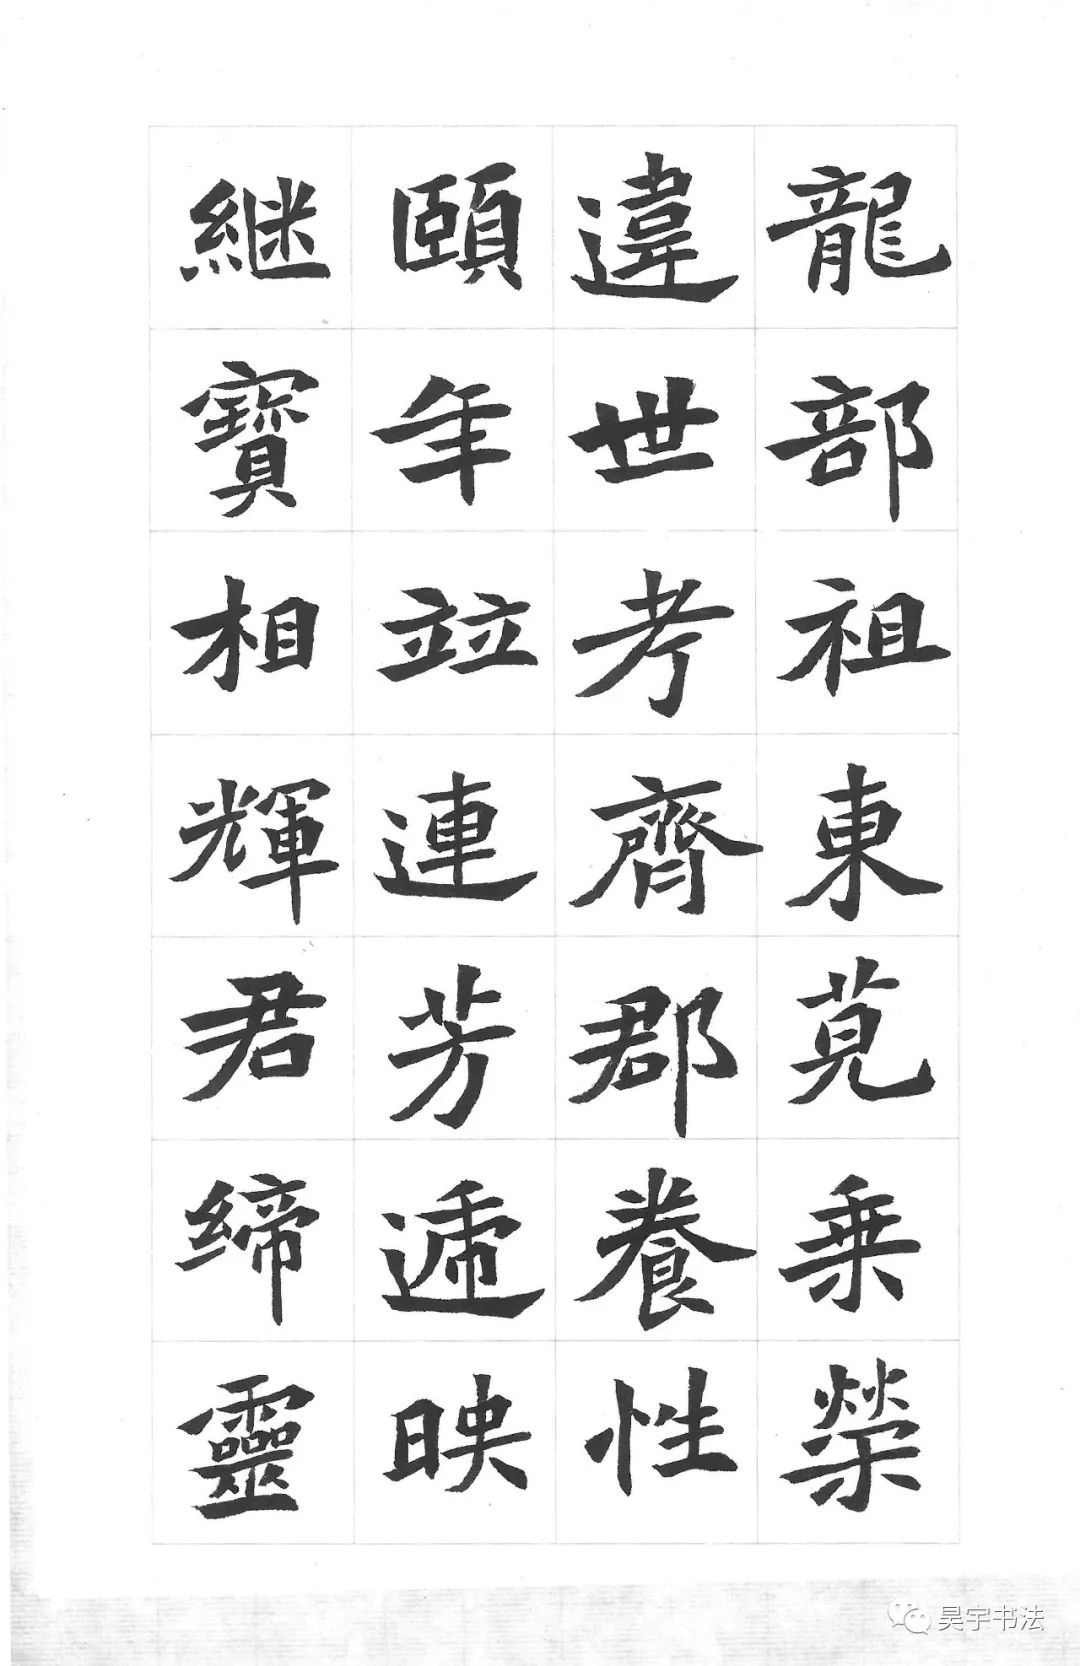 龍部祖東莧乗榮
違世考齊郡養性
頤年竝連芳遞映
継寶相輝君締靈
昊宇书法